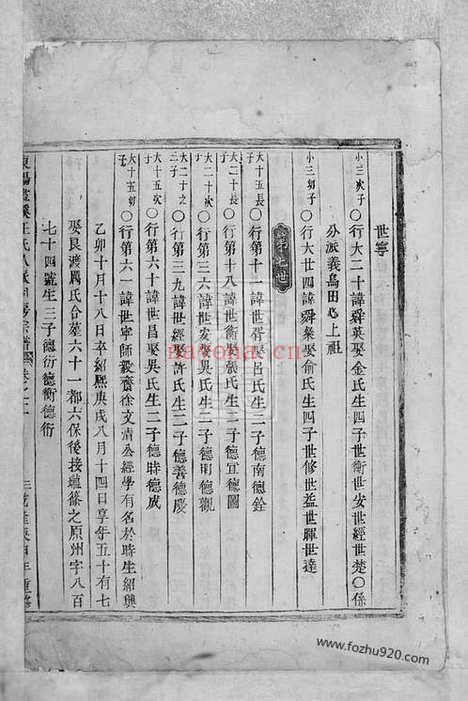 世寧
小三次子〇行大二十諱舜英娶金氏生四子世衡世安世經世楚〇係
分派義烏田心上祖
小三幼子〇行大廿四諱舜粲娶俞氏生四子世修世益世輝世達
第七世
大十五長子〇行第十一諱世胥娶呂氏生二子德南德銓
大二十長子〇行第十八諱世衡娶張氏生二子德宜德圖
大十五次子〇行第三六諱世安娶吳氏生二子德明德觀
大二十之二子〇行第三九諱世經娶許氏生二子德善德慶
大十五次子〇行第六十諱世昌娶吳氏生二子德時德成
大十五幼子〇行第六一諱世寧師毅齋徐文清公經學有名於時生紹興
乙卯十月十八日卒紹熙庚戌八月十四日享年五十有七
娶良渡厲氏合墓六十一都六保後接塘篠之原州字八百
七十四號生三子德衍德衡德衎
navona.cn
www.fozhu920.com